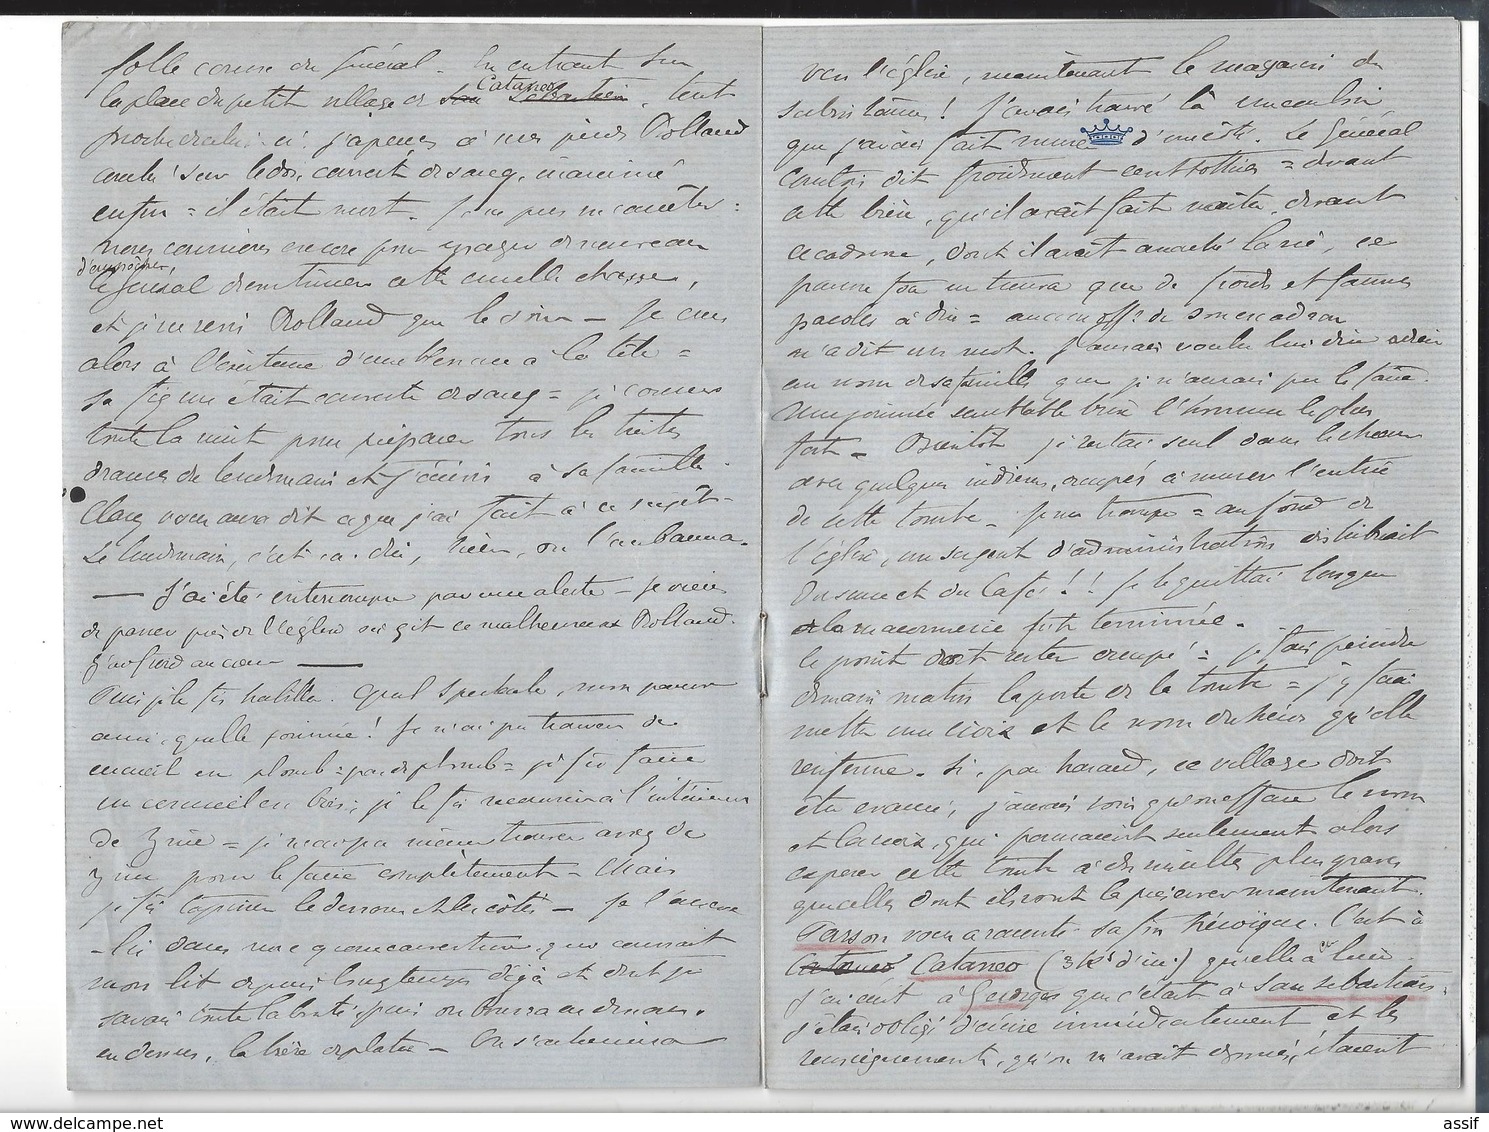 folle course du Général. En entrant sur
la place du petit village de San Sebastien Cataneo, tout
j'aperçus à mes pieds Rolland
couché sur le dos, couvert de sang, inanimé
enfin = il était mort. Je ne pus m'arrêter :
nous courrières encore pour essayer de nouveau
d'empêcher,
le Général d'entamer cette cruelle chasse,
et je ne revis Rolland que le soir — Je crus
alors à l'existence d'une blessure à la tête =
sa figure était couverte de sang = je courus
toute la nuit pour préparer tous les tristes
drames du lendemain et j'écrivis à sa famille.
Clary vous aura dit ce que j'ai fait à ce sujet —
Le lendemain, c'est-à-dire, hier, on l'embauma.
— J'ai été interrompu par une alerte — je viens
de passer près de l'église où gît ce malheureux Rolland.
J'ai froid au cœur —
Puis je le fis habiller. Quel spectacle, mon pauvre
ami, quelle journée ! Je n'ai pu trouver de
cercueil en plomb = pas de plomb = je fis faire
un cercueil en bois ; je le fis recouvrir à l'intérieur
de zinc = je n'ai pu même trouver assez de
zinc pour le faire complètement = Mais
je fis tapisser le dessous et les côtés — Je l'
dans une couverture, qui couvrait
mon lit depuis longtemps déjà et dont je
savais toute la bonté, puis on
en dessus, la bière de plâtre — On s'achemina
vers l'église, maintenant le magasin de
subsistances ! J'avais trouvé là un caveau
que j'avais fait murer d'un côté. Le Général
dit froidement cent sottises = devant
cette bière, qu'il avait fait naître, devant
ce cadavre, dont il avait arraché la vie, ce
pauvre fou ne trouva que de froides et fausses
paroles à dire = aucun offr. de son escadron
n'a dit un mot. J'aurais voulu lui dire adieu
au nom de sa famille que je n'aurais pu le faire.
Une journée semblable brise l'homme le plus
fort — Bientôt je restai seul dans le chœur
avec quelques indiens, occupés à murer l'entrée
de cette tombe — je me trompe = au fond de
l'église, un sergent d'administration distribuait
du sucre et du café !! Je le quittai lorsque
la maçonnerie fut terminée.
Le point doit rester occupé = je fais peindre
demain matin la porte de la tombe = j'y fais
mettre une croix et le nom du héros qu'elle
renferme. Si, par hasard, ce village doit
être évacué, j'aurais soin qu'on efface le nom
et la croix, qui pourraient seulement alors
exposer cette tombe à des insultes plus graves
que celles dont ils vont la préserver maintenant.
vous a raconté sa fin héroïque. C'est à
Cataneo Cataneo (3 k° d'ici) qu'elle a eu lieu.
J'ai écrit à Georges que c'était à San Sebastien,
j'étais obligé d'écrire immédiatement et les
renseignements, qu'on m'avait donnés, étaient
www.delcampe.net
assif